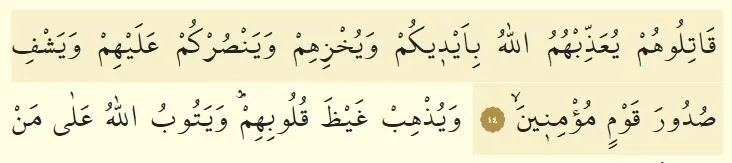 قَاتِلُوهُمْ يُعَذِّبْهُمُ اللّٰهُ بِاَيْد۪يكُمْ وَيُخْزِهِمْ وَيَنْصُرْكُمْ عَلَيْهِمْ وَيَشْفِ
صُدُورَ قَوْمٍ مُؤْمِن۪ينَۙ ١٤ وَيُذْهِبْ غَيْظَ قُلُوبِهِمْۜ وَيَتُوبُ اللّٰهُ عَلٰى مَنْ